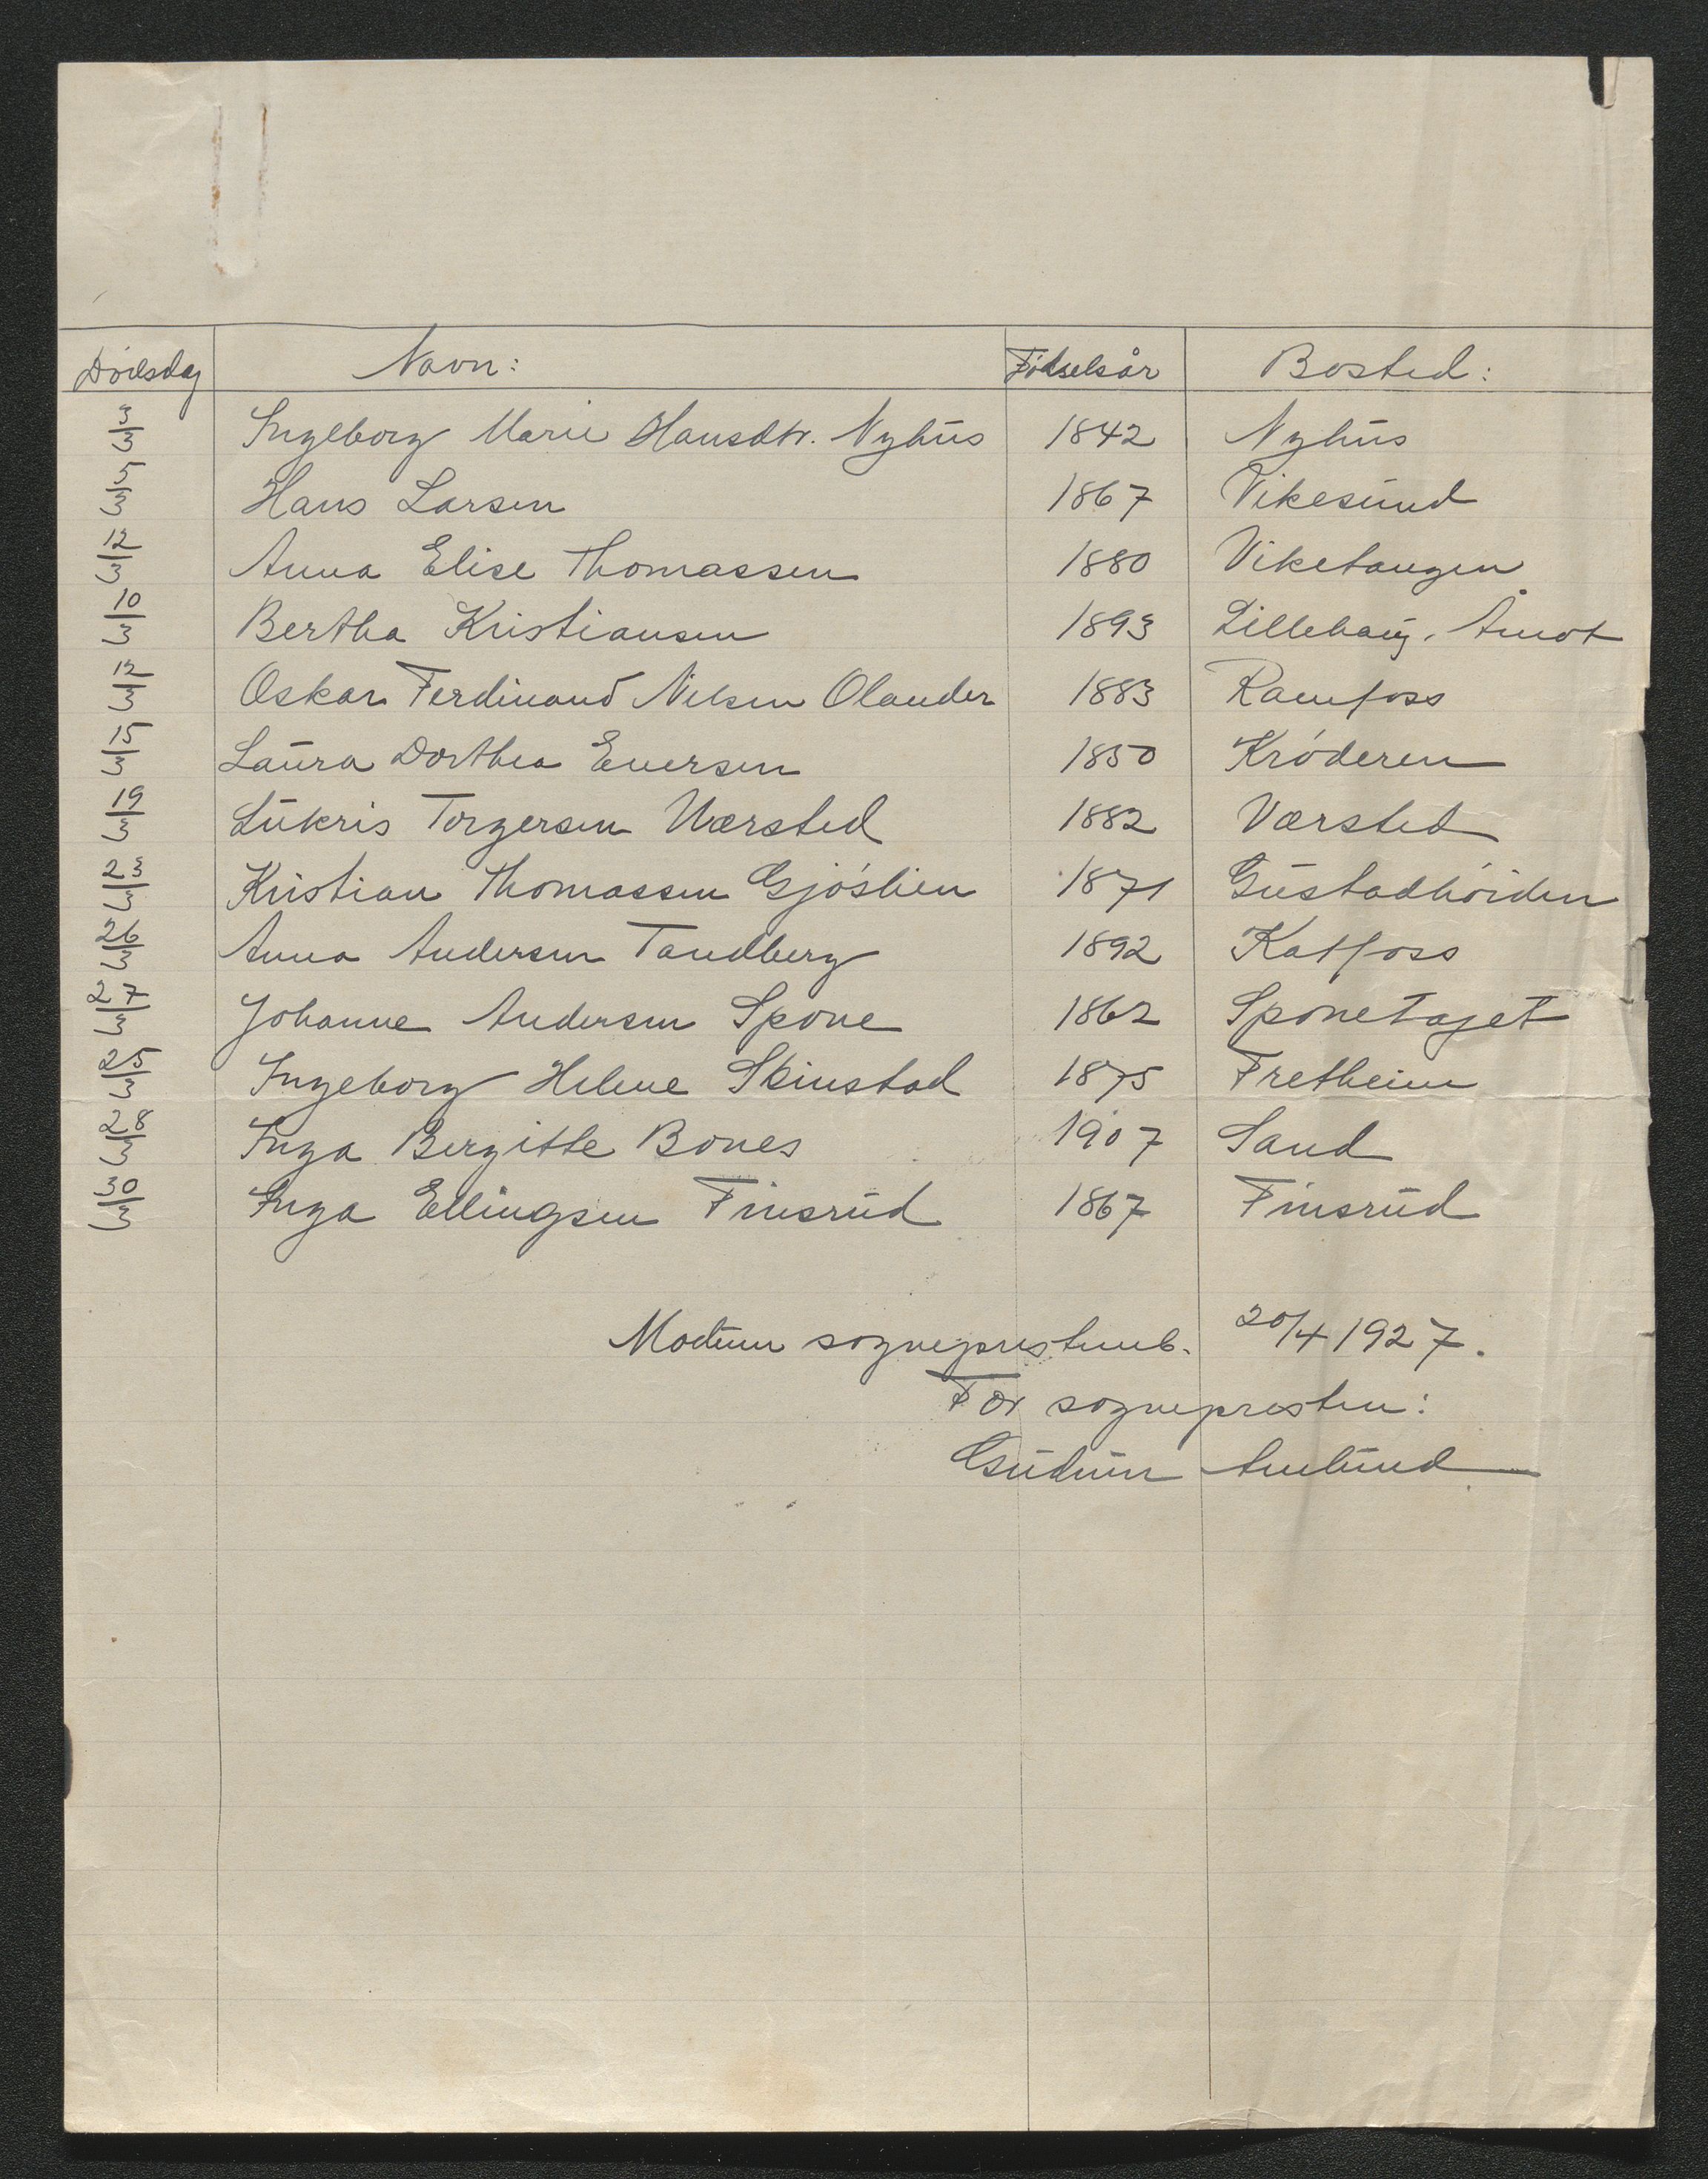 Dödsdag Navn: Fødselsår Bosted:
3/3 Ingeborg Marie Hansdtr. Nyhus 1842 Nyhus
5/3 Hans Larsen 1867 Vikesund
12/3 Anna Elise Thomassen 1880 Viketangen
10/3 Bertha Kristiansen 1893 Lillehaug. Åmot
12/3 Oskar Ferdinand Nilsen Olander 1883 Ramfoss
15/3 Laura Dorthea Eversen 1850 Kröderen
19/3 Lukris Torgersen Værsted 1882 Værsted
23/3 Kristian Thomassen Gjöslien 1871 Gustadhöiden
26/3 Anna Andersen Tandberg 1892 Katfoss
27/3 Johanne Andersen Spone 1862 Sponetajet
25/3 Ingeborg Helene Skinstad 1875 Fretheim
28/3 Inga Bergitte Bones 1907 Sand
30/3 Inga Ellingsen Finsrud 1867 Finsrud
Modum sogneprestemb. 20/4 1927.
For sognepresten:
Gudrun Amlund